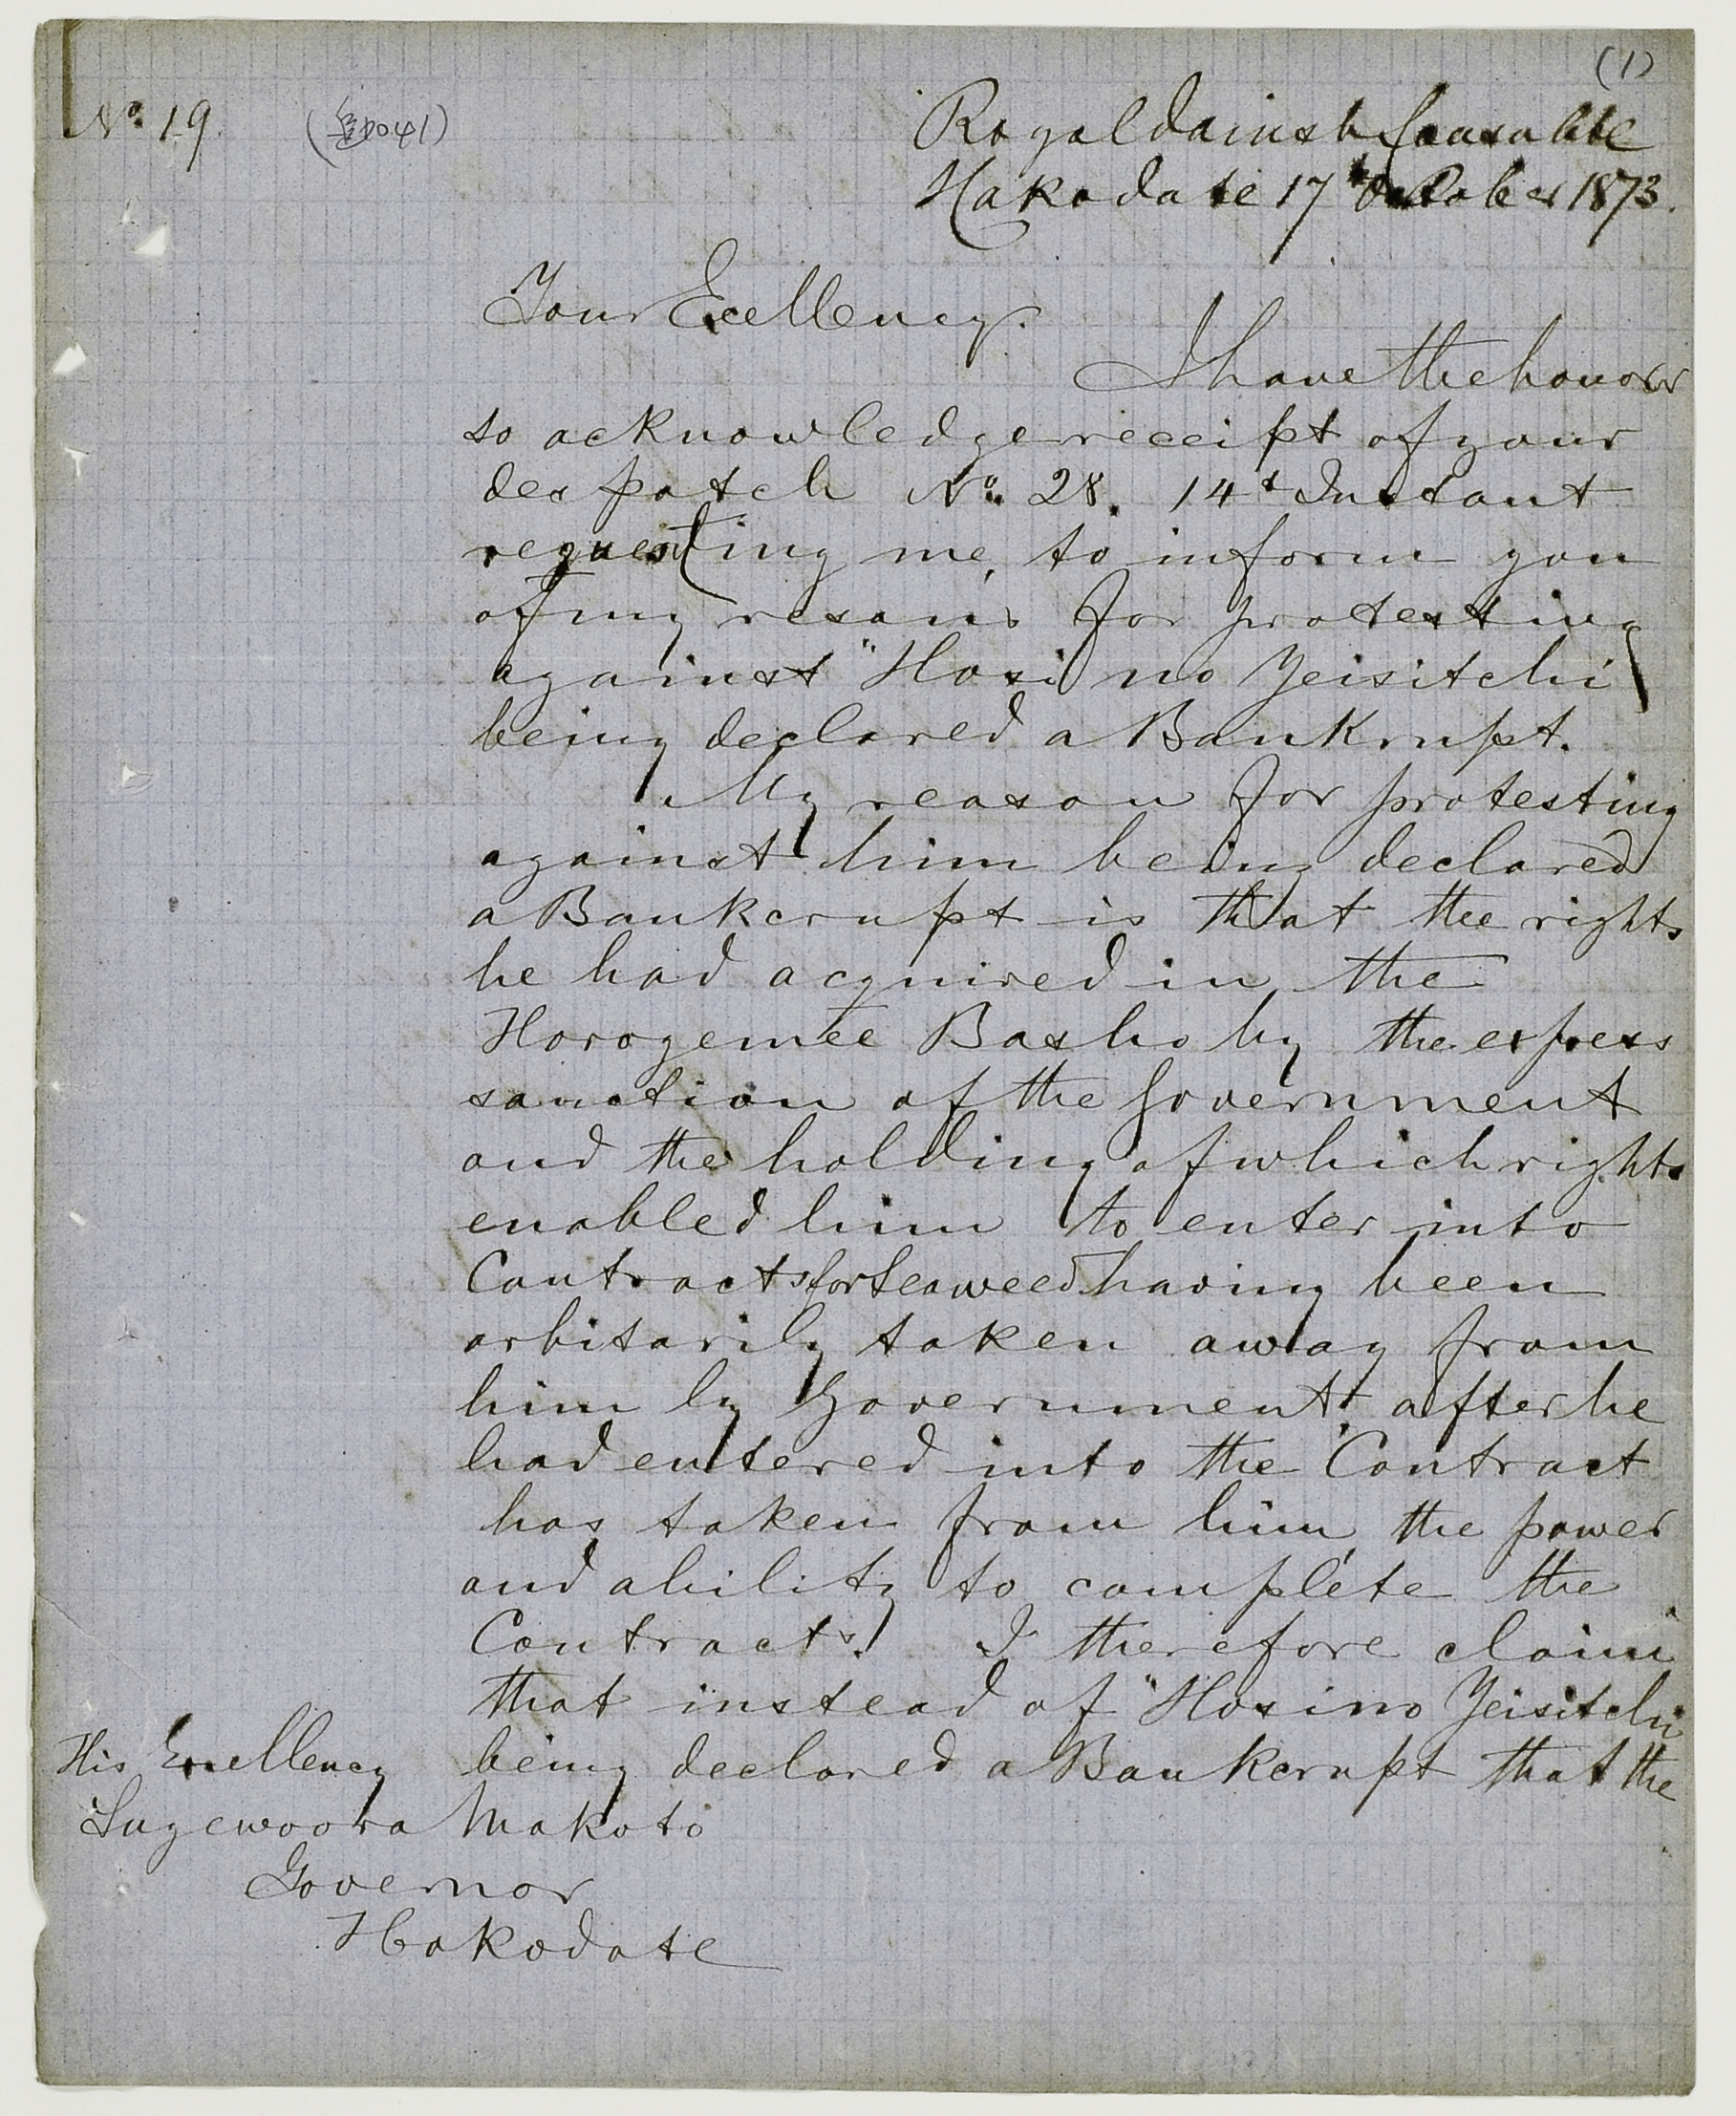 (1)
No. 19
Royal Dainsh Consulate
Hakodate 17th October 1873.
Your Excellency.
I have the honour
to acknowledge receipt of your
despatch No. 28. 14t Instant
requesting me, to inform you
of my resons for protesting
against "Hosi no Yeisitchi"
being declared a Bankrupt.
My reason for protesting
against him being declared
a Bankcrupt is that the rights
he had acquired in the
Horogemee Basho by the express
sanction of the Government
and the holding of which rights
enabled him to enter into
Contracts for Seaweed having been
arbitarily taken away from
him by Government, after he
had entered into the Contract
has taken from him the power
and ability to complete the
Contracts. I therefore claim
that instead of "Hosino Yeisitchi
being declared a Bankcrupt that the
His Excellency
Sugewoora Makoto
Governor
Hakodate